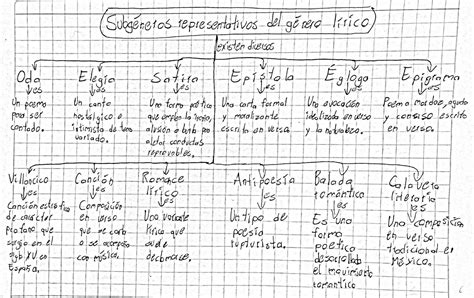 Subgéneros representativos del género lírico
existen diversos
Oda
Elegía
Sátira
Epístola
Égloga
Epigrama
es
es
es
es
es
es
Un poema
para ser
cantado.
Un canto
nostálgico o
intimista de tema
variado.
Una forma poética
que emplea la ironía,
alusión o burla para
delatar conductas
reprovables.
Una carta formal
y moralizante
escrita en verso.
Una evocación
idealizada en verso
y la naturaleza.
Poema mordaz, agudo
y conciso escrito
en verso.
Villancico
Canción
Romance
lírico
Antipoesía
Balada
romántica
Calavera
literaria
es
es
es
es
es
es
Canción estrófica
de carácter
profano que
surgió en el
siglo XV en
España.
Composición
en verso
que se canta
o se acompaña
con música.
Una variante
lírica que
sale
Un tipo de
poesía
rupturista.
Es una
forma
poética
desarrollada
el movimiento
romántico
Una composición
en verso
tradicional en
México.